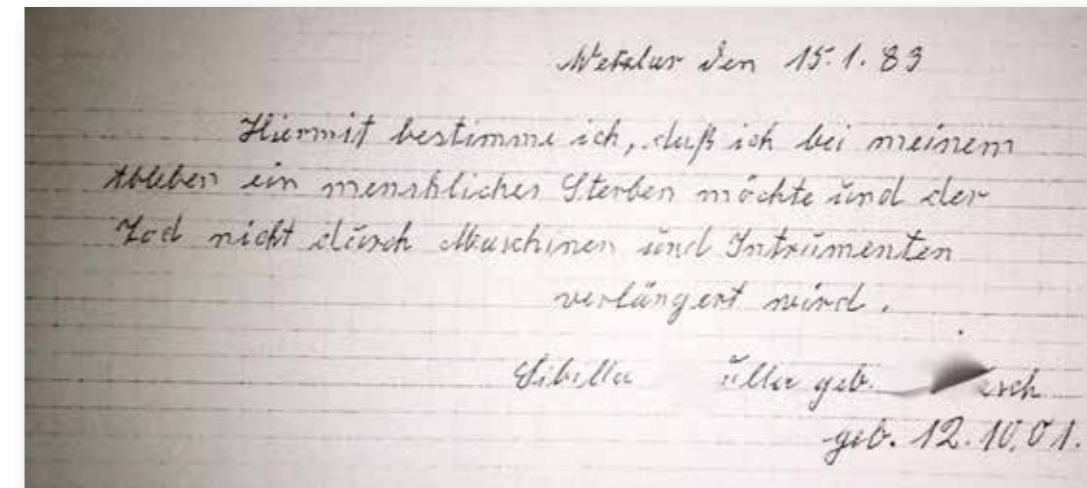 Wetzlar den 15.1.83
Hiermit bestimme ich, daß ich bei meinem
Ableben ein menshliches Sterben möchte und der
Tod nicht durch Maschinen und Intrumenten
verlängert wird.
Sibilla üller geb. esch
geb. 12.10.01.